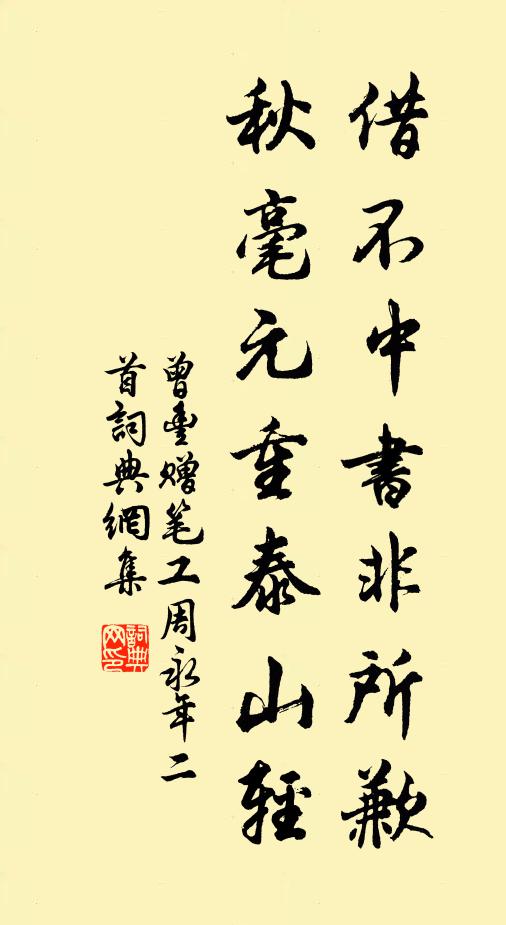 借不中書非所歉
秋毫元重泰山輕
曾豊赠笔工周永年二
首詞典網集
詞典
网印